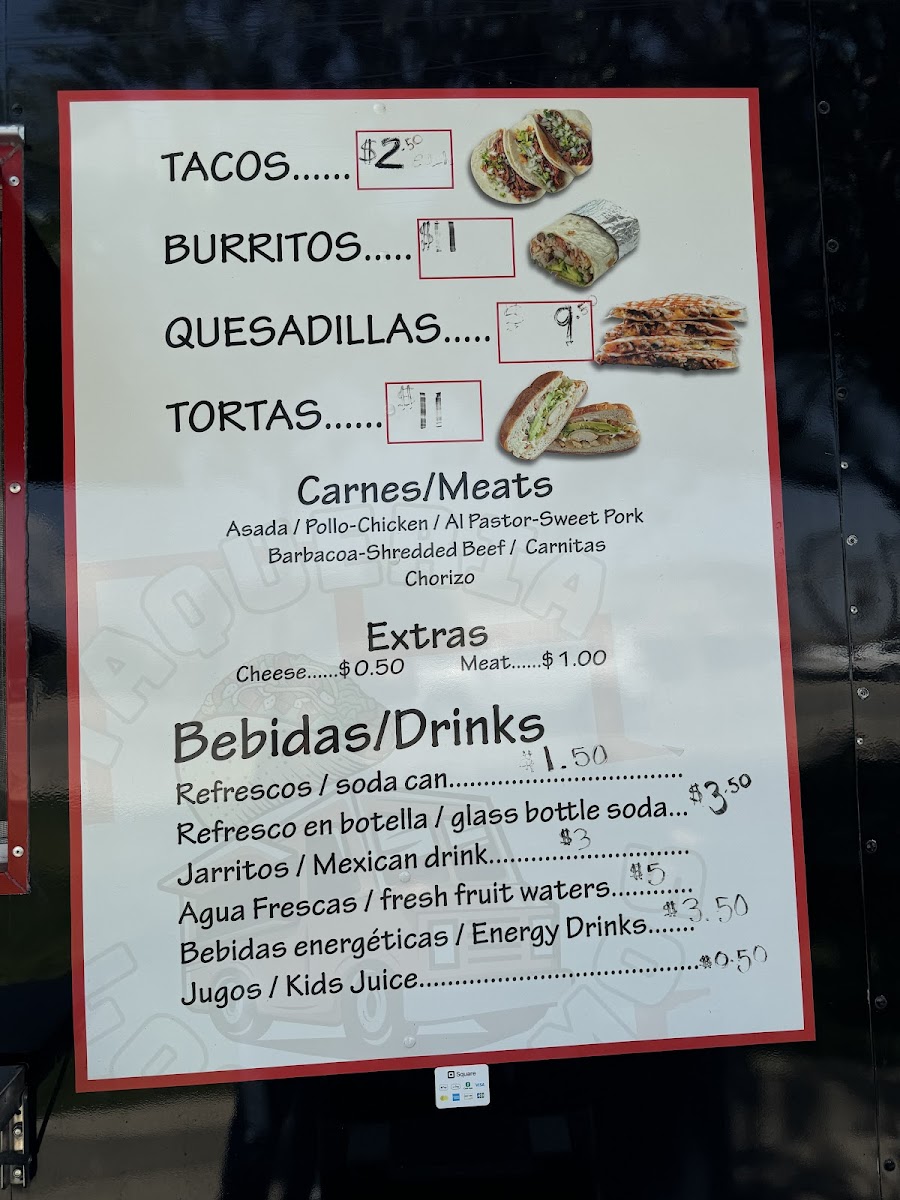 TACOS...... $2.50
BURRITOS..... $11
QUESADILLAS..... $9.5
TORTAS...... $11
Carnes/Meats
Asada / Pollo-Chicken / Al Pastor-Sweet Pork
Barbacoa-Shredded Beef / Carnitas
Chorizo
Extras
Cheese......$0.50 Meat......$1.00
Bebidas/Drinks
Refrescos / soda can.................................. $1.50
Refresco en botella / glass bottle soda... $3.50
Jarritos / Mexican drink............................. $3
Agua Frescas / fresh fruit waters............ $5
Bebidas energéticas / Energy Drinks....... $3.50
Jugos / Kids Juice......................................... $0.50
TAQUERIA
Square
VISA